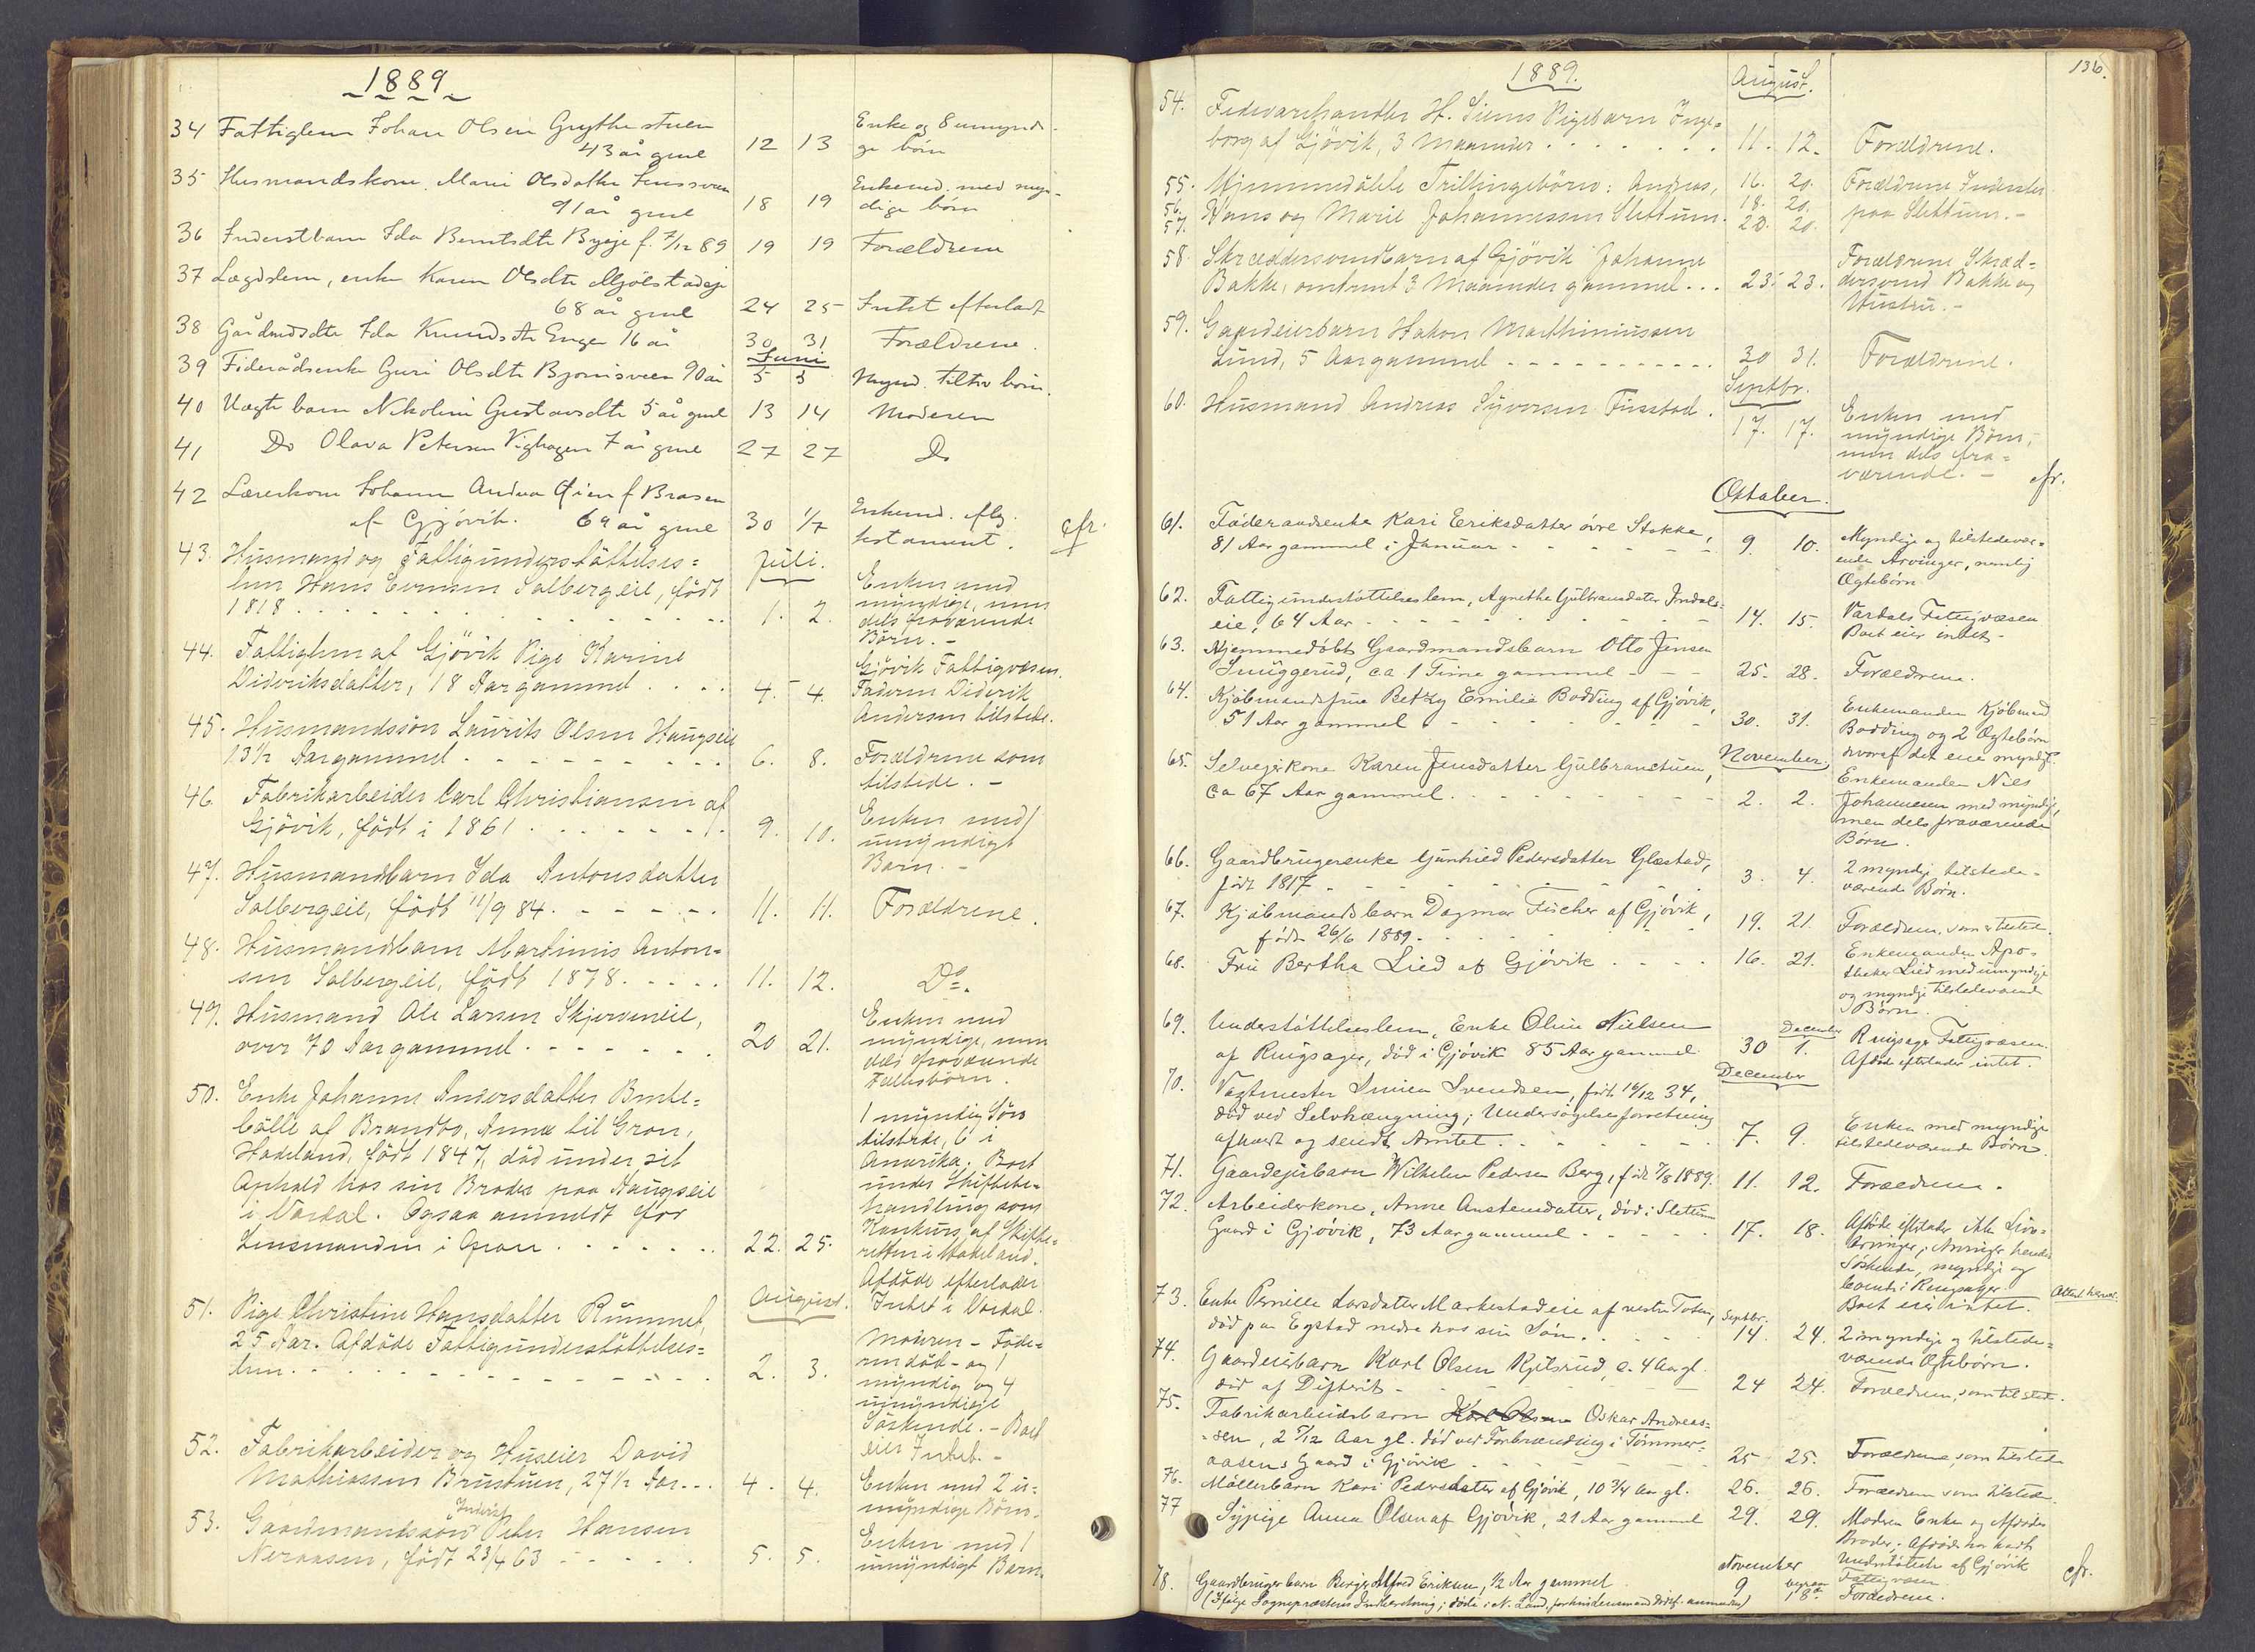 1889.
34 Fattiglem Johan Olsen Grythestuen
43 år gml 12 13 Enke og 8 umyndi-
ge børn
35 Husmandskone Marie Olsdatter
91 år gml 18 19 Enkemd. med myn-
dige børn
36 Inderstbarn Ida Berntsdtr Bygje f. 7/12 89 19 19 Forældrene
37 Lægdslem, enke Karen Olsdtr Mjølstadeje
68 år gml 24 25 Intet efterladt
38 Gårdmdsdtr Ida Knudsdtr Enger 16 år 30 31 Forældrene.
Juni
39 Føderådsenke Guri Olsdtr Bjørnsveen 90 år 5 5 Mynd. tilstv børn.
40 Uægte barn Nikoline Gustavsdtr 5 år gml 13 14 Moderen
41 Do Olava Petersen Vighagen 7 år gml 27 27 Do
42 Lærerkone Johanne Andrea Øien f Brasen
af Gjøvik. 69 år gml 30 1/7 Enkemd. eflg.
testament. cfr.
43. Husmand og Fattigunderstøttelses= Juli.
lem Hans Evensen Solbergeie, født
1818 1. 2. Enken med
myndige, men
dels fraværende
Børn. -
44. Fattiglem af Gjøvik Pige Karine
Dideriksdatter, 18 Aar gammel 4. 4. Gjøvik Fattigvæsen.
Faderen Diderik
Andersen tilstede.
45. Husmandssøn Laurits Olsen Haugseie
13½ Aar gammel 6. 8. Forældrene som
tilstede. -
46. Fabrikarbeider Carl Christiansen af
Gjøvik, født i 1861 9. 10. Enken med 1
umyndigt
Barn. -
47. Husmandbarn Ida Antonsdatter
Solbergeie, født 11/9 84. 11. 11. Forældrene.
48. Husmandbarn Martinus Anton=
sen Solbergeie, født 1878. 11. 12. Do.
49. Husmand Ole Larsen Skjerveneie,
over 70 Aar gammel 20 21. Enken med
myndige, men
dels fraværende
Fællesbørn.
50. Enke Johanne Andersdatter Brute=
bølle af Brandbo, Annex til Gran,
Hadeland, født 1847, død under sit
Ophold hos sin Broder paa Haugseie
i Vardal. Ogsaa anmeldt for
Lensmanden i Gran 22. 25. 1 myndig Søn
tilstede, 6 i
Amerika; Boet
under Skiftebe=
handling som
Konkurs af Skifte=
retten i Hadeland.
Afdøde efterlader
Intet i Vardal.
August.
51. Pige Christine Hansdatter Rummel,
25 Aar. Afdøde Fattigunderstøttelses=
lem 2. 3. Moderen - Fade=
ren død - og 1
myndig og 4
umyndige
Søskende. - Boet
eier Intet. -
52. Fabrikarbeider og Huseier David
Mathiassen Brustuen, 27½ Aar 4. 4. Enken med 2 u=
myndige Børn.
53. Gaardmandssøn Inderst Peter Hansen
Neraasen, født 23/4 63 5. 5. Enken med 1
umyndigt Barn.
136.
1889. August.
54. Fedevarehandler H. Siems Pigebarn Inge=
borg af Gjøvik, 3 Maaneder 11. 12. Forældrene.
55. Hjemmedøbte Trillingebørn: Andreas, 16. 20. Forældrene Inderster
56. Hans og Marie Johannessen Slettum. 18. 20. paa Slettum. -
57. 20. 20.
58. Skræddersvendbarn af Gjøvik Johanne
Bakke, omtrent 3 Maaneder gammel 23. 23. Forældrene Skræd=
dersvend Bakke og
Hustru. -
59. Gaardeierbarn Hakon Marthiniussen
Lund, 5 Aar gammel 30 31. Forældrene.
Septbr.
60. Husmand Andreas Syversen Finstad. 17. 17. Enken med
myndige Børn,
men dels fra=
værende. - cfr.
October.
61. Føderaadsenke Kari Eriksdatter øvre Stokke,
81 Aar gammel i Januar 9. 10. Myndige og tilstedevær=
ende Arvinger, nemlig
Ægtebørn
62. Fattigunderstøttelseslem, Agnethe Gulbrandsdater
eie, 64 Aar 14. 15. Vardals Fattigvæsen
Boet eier intet -
63. Hjemmedøbt Gaardmandsbarn Otto Jensen
Snuggerud, ca 1 Time gammel 25. 28. Forældrene.
64. Kjøbmandsfrue Betzy Emilie Bodding af Gjøvik,
51 Aar gammel 30. 31. Enkemanden Kjøbmand
Bodding og 2 Ægtebørn
hvoraf det ene myndigt.
November,
65. Selvejerkone Karen Jensdatter Gulbranstuen,
ca 67 Aar gammel. 2. 2. Enkemanden Nils
Johannesen med myndige,
men dels fraværende
Børn.
66. Gaardbrugerenke Gunhild Pedersdatter Glæstad,
født 1817 3. 4. 2 myndige tilstede-
værende Børn.
67. Kjøbmandsbarn Dagmar Fischer af Gjøvik,
født 26/6 1889 19. 21. Forældrene, som er tilsted.
68. Frue Bertha Lied af Gjøvik 16. 21. Enkemanden Apo-
theker Lied med umyndige
og myndige tilstedeværende
Børn.
69. Understøttelseslem, Enke Oline Nielsen December
af Ringsager, død i Gjøvik 85 Aar gammel 30 1. Ringsager Fattigvæsen.
Afdøde efterlader intet.
December
70. Vagtmester Simen Svendsen, født 16/12 34,
død ved Selvhængning; Undersøgelsesforretning
afholdt og sendt Amtet 7. 9. Enken med myndige
tilstedeværende Børn.
71. Gaardejerbarn Wilhelm Pedersen Berg, født 7/8 1889. 11. 12. Forældrene.
72. Arbeiderkone, Anne Austensdatter, død i Slettum
Gaard i Gjøvik, 73 Aar gammel 17. 18. Afdøde efterlader ikke Livs=
arvinger; Arvinger hendes
Søskende, myndige og
boende i Ringsager.
Boet eier intet.
73. Enke Pernille Larsdatter Markestadeie af vestre Toten, Septbr.
død paa Egstad nedre hos sin Søn. 14. 24. 2 myndige og tilstede=
værende Ægtebørn.
74. Gaardeierbarn Karl Olsen Kjelsrud, c. 4 Aar gl.
død af Difterit 24 24. Forældrene, som tilsted.
75. Fabrikarbeiderbarn Karl Olsen Oskar Andreas=
=sen, 2 5/12 Aar gl. død ved Forbrænding i Tømmer=
aasens Gaard i Gjøvik 25 25. Forældrene, som tilstede
76. Møllerbarn Kari Pedersdatter af Gjøvik, 10 3/4 Aar gl. 26. 26. Forældrene som tilstede.
77 Sypige Anna Olsen af Gjøvik, 21 Aar gammel 29. 29. Moderen Enken og Afdødes
Broder; Afdøde har havt
Understøttelse af Gjøvik
Fattigvæsen.
November
78. Gaardbrugerbarn Birger Alfred Eriksen, ½ Aar gammel 9 18de Forældrene. cfr.
(Ifølge Sognepræstens Indberetning; døde i N. Land,